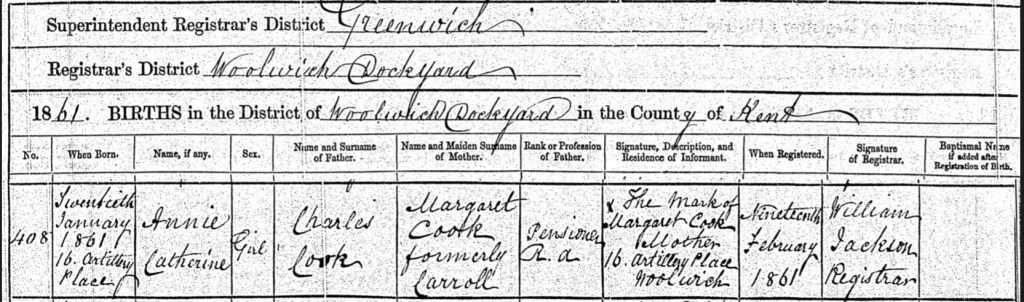 Superintendent Registrar's District Greenwich
Registrar's District Woolwich Dockyard
1861. BIRTHS in the District of Woolwich Dockyard in the County of Kent
No. When Born. Name, if any. Sex. Name and Surname of Father. Name and Maiden Surname of Mother. Rank or Profession of Father. Signature, Description, and Residence of Informant. When Registered. Signature of Registrar. Baptismal Name if added after Registration of Birth.
408
Twentieth
January
1861
16. Artillery
Place
Annie
Catherine
Girl
Charles
Cook
Margaret
Cook
formerly
Carroll
Pensioner
R. a
x The Mark of
Margaret Cook
Mother
16. Artillery Place
Woolwich
Nineteenth
February
1861
William
Jackson
Registrar